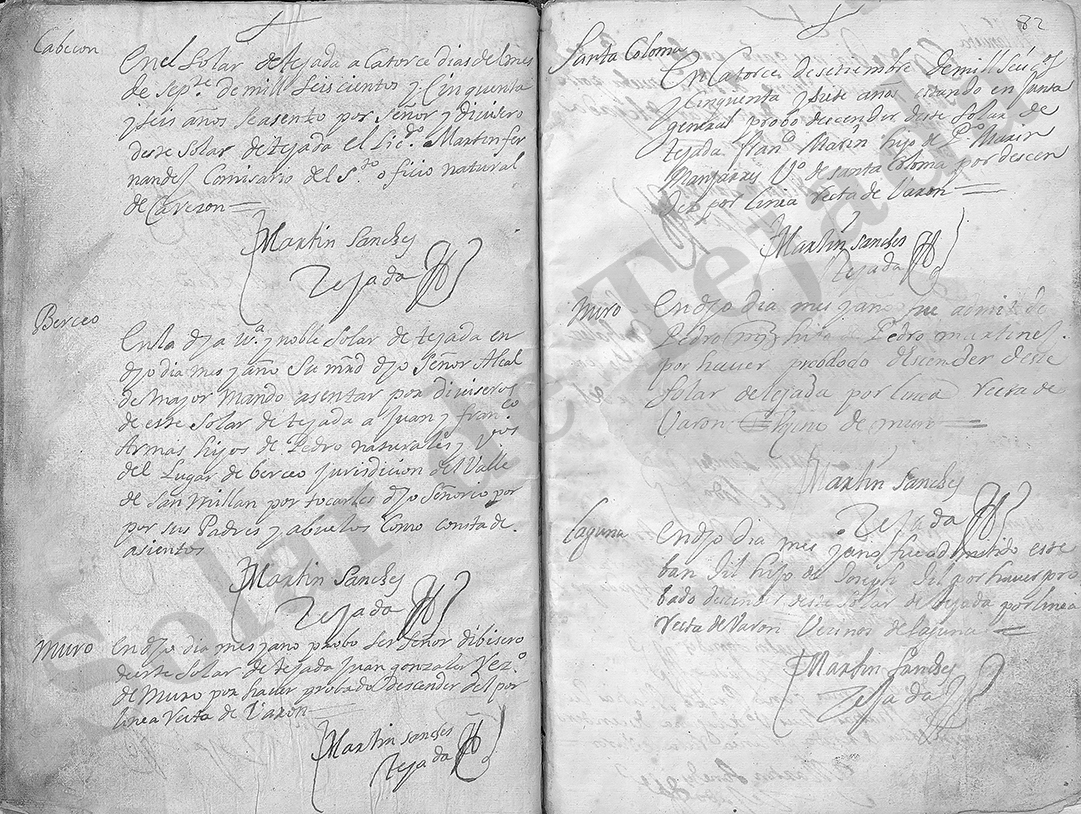 Cabecon
En el Solar de tejada a Catorce dias del mes
de Sepre de mill Seiscientos y Cinquenta
y seis años se asento por Señor y divisero
deste Solar de tejada el Licdo Martin fer
nandes Comisario del Sto oficio natural
de Caveron
Martin Sanches
Tejada
Berceo
En la dja va y noble Solar de tejada en
djo dia mes y año Su mrd djo Señor Alcal
de major Mando asentar por diviseros
de este Solar de tejada a Juan y franco
Armas hijos de Pedro naturales y
del Lugar de berceo Jurisdicion del Valle
de San Millan por tocarles djo Señorio por
por sus Padres y abuelos Como consta de
asientos
Martin Sanches
Tejada
Muro
En djo dia mes y año probo ser Señor dibisero
deste Solar de tejada Juan gonzales Vezo
de Muro por haver probado descender del por
linea Recta de Varon
Martin Sanches
Tejada
82
Santa Coloma
En Catorce de setiembre de mill Seis
y Cinquenta y siete años estando en Junta
general probo descender deste Solar de
tejada Frando Marin hijo de Po Marin
Manjarres Vo de santa Coloma por descen
der por linia recta de Varon
Martin Sanches
Tejada
Muro
En djo dia mes y año fue admitido
Pedro hijo Pedro martines
por haver prodado descender deste
Solar de tejada por linea Recta de
Varon de muro
Martin Sanches
Tejada
Laguna
En djo dia mes y año fue admitido este
ban Gil hijo de Joseph Gil por haver pro
bado deste Solar de tejada por linea
Recta de Varon Vecino de laguna
Martin Sanches
Tejada
Solar de Tejada